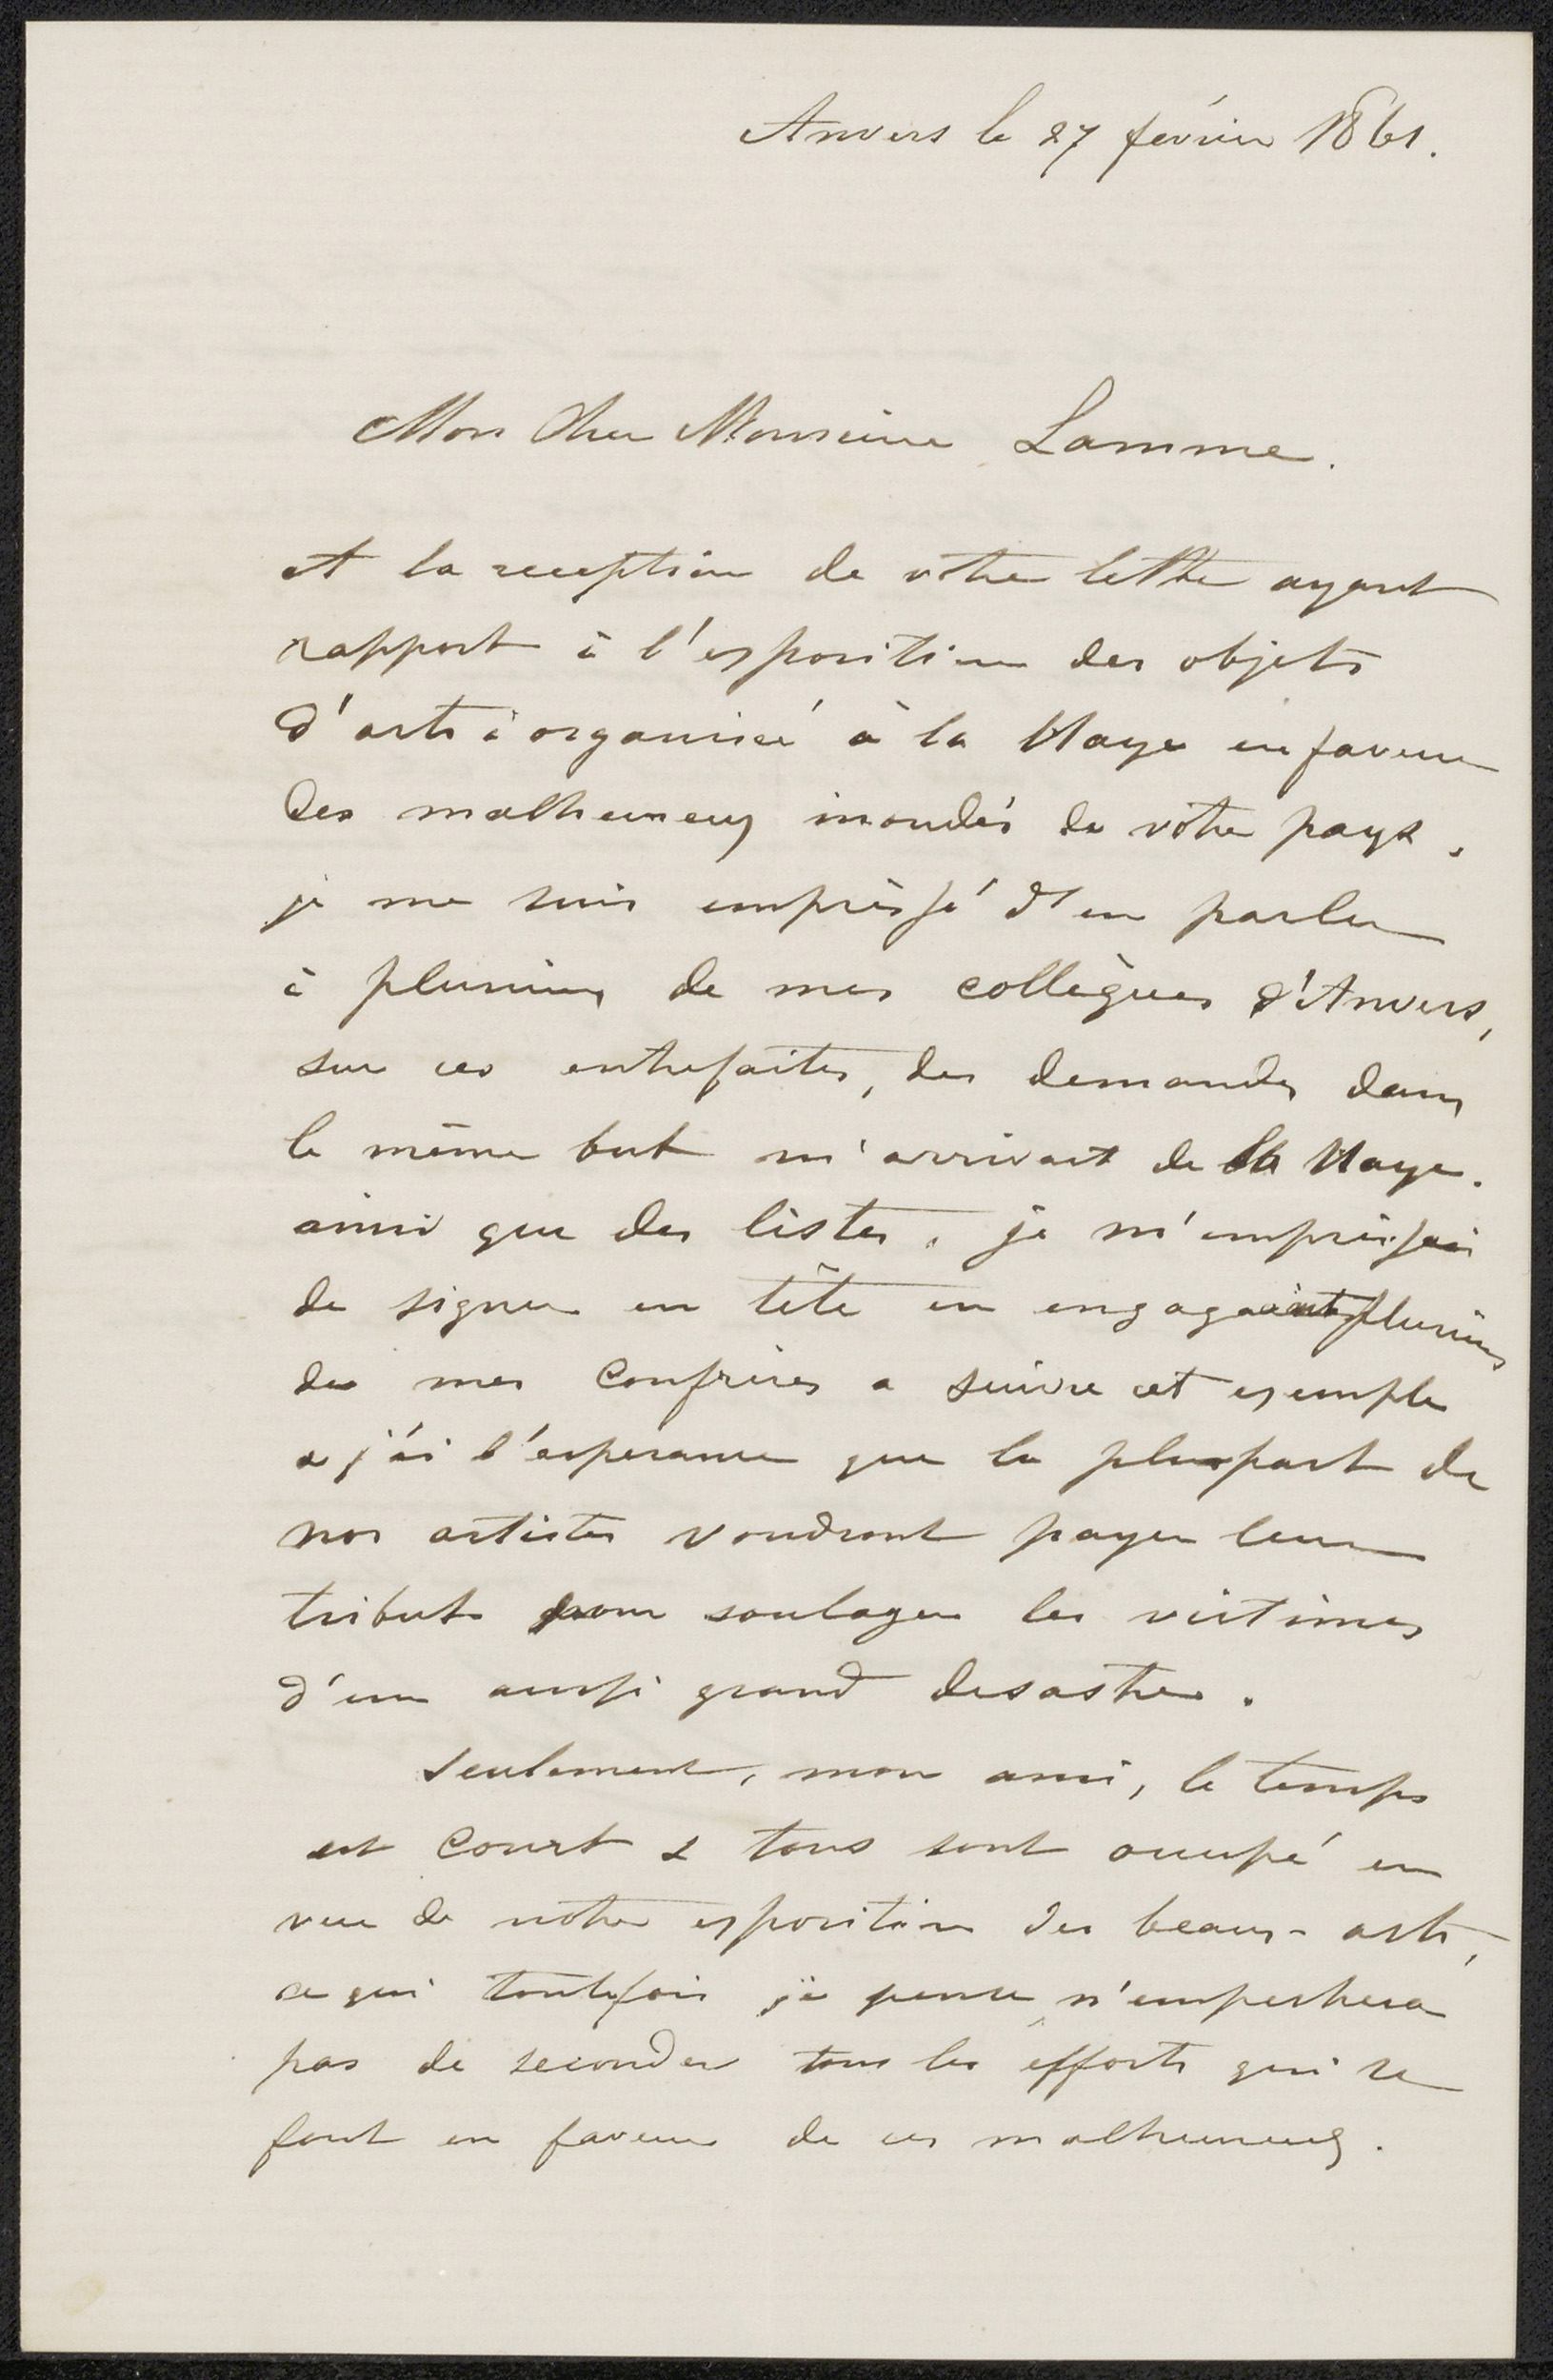 Anvers le 27 février 1861.
Mon Cher Monsieur Lamme.
A la reception de votre lettre ayant
rapport à l'exposition des objets
d'arts à organisée à la Haye en faveur
des malheureux inondés de votre pays,
je me suis empressé d'en parler
à plusieurs de mes collègues d'Anvers,
sur ces entrefaites, des demandes dans
le même but m'arrivait de la Haye.
ainsi que des listes, je m'empressai
de signer en tête en engageant plusieurs
de mes Confrères a suivre cet exemple
& j'ai l'esperance que la pluspart de
nos artistes voudront payer leur
tribut pour soulager les victimes
d'un aussi grand desastre.
Seulement, mon ami, le temps
est Court & tous sont occupé en
vue de notre exposition des beaux-arts,
ce qui toutefois je pense n'empechera
pas de seconder tous les efforts qui se
font en faveur de ces malheureux.